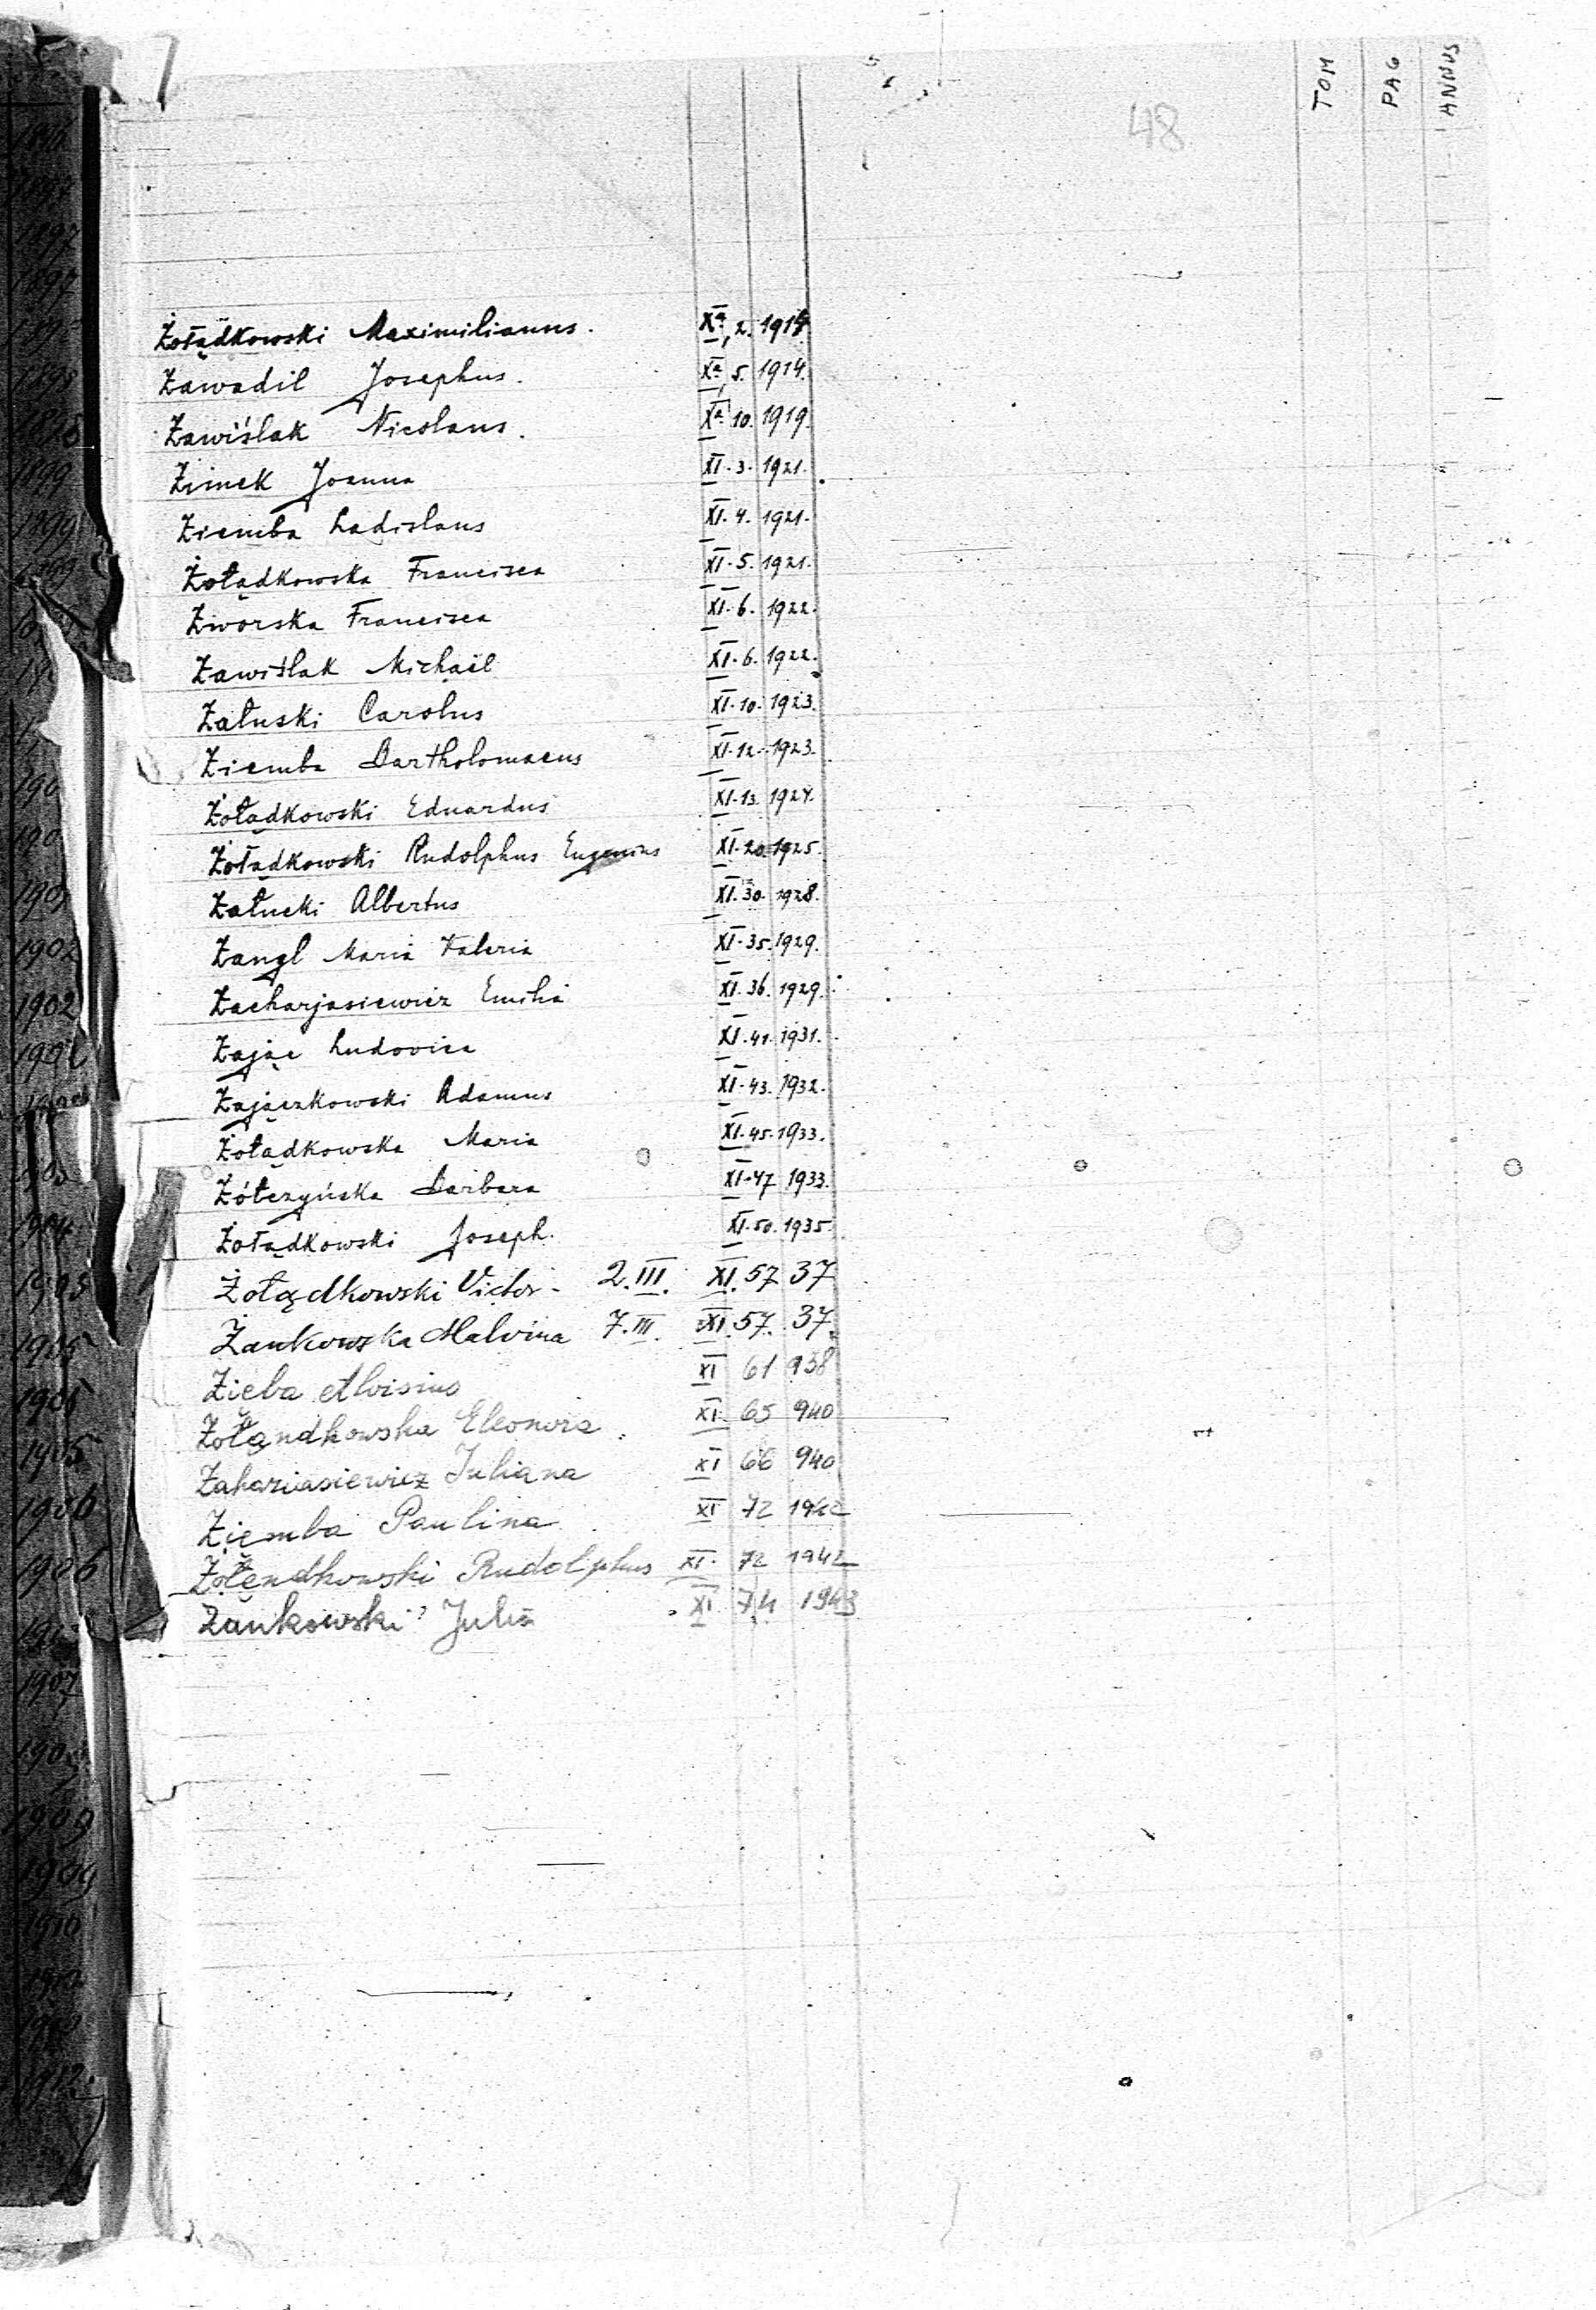 TOM PAG ANNUS
48
Żołądkowski Maximilianus. Xa, 2. 1914
Zawadil Josephus. Xa, 5. 1914.
Zawiślak Nicolaus. Xa. 10. 1919.
Zimek Joanna XI. 3. 1921.
Ziemba Ladislaus XI. 4. 1921.
Żołądkowska Francisca XI. 5. 1921.
Zworska Francisca XI. 6. 1922.
Zawiślak Michaël XI. 6. 1922.
Załuski Carolus XI. 10. 1923.
Ziemba Bartholomaeus XI. 12. 1923.
Żołądkowski Eduardus XI. 13. 1924.
Żołądkowski Rudolphus Eugenius XI. 20. 1925.
Załucki Albertus XI. 30. 1928.
Zangl Maria Valeria XI. 35. 1929.
Zacharjasiewicz Emilia XI. 36. 1929.
Zając Ludovica XI. 41. 1931.
Zajączkowski Adamus XI. 43. 1932.
Żołądkowska Maria XI. 45. 1933.
Żółczyńska Barbara XI. 47 1933.
Żołądkowski Joseph. XI. 50. 1935.
Żołądkowski Victor - 2.III. XI. 57 37
Żankowska Malvina 7.III. XI. 57. 37.
Zięba Aloisius XI 61 938
Żołandkowska Eleonora XI. 65 940
Zahariasiewicz Juliana XI 66 940
Ziemba Paulina XI 72 1942
Żołendkowski Rudolphus XI. 72 1942
Zankowski Julia XI 74 1943
1897
1897
1899
1899
1902
1902
1905
1906
1906
1907
1909
1909
1912